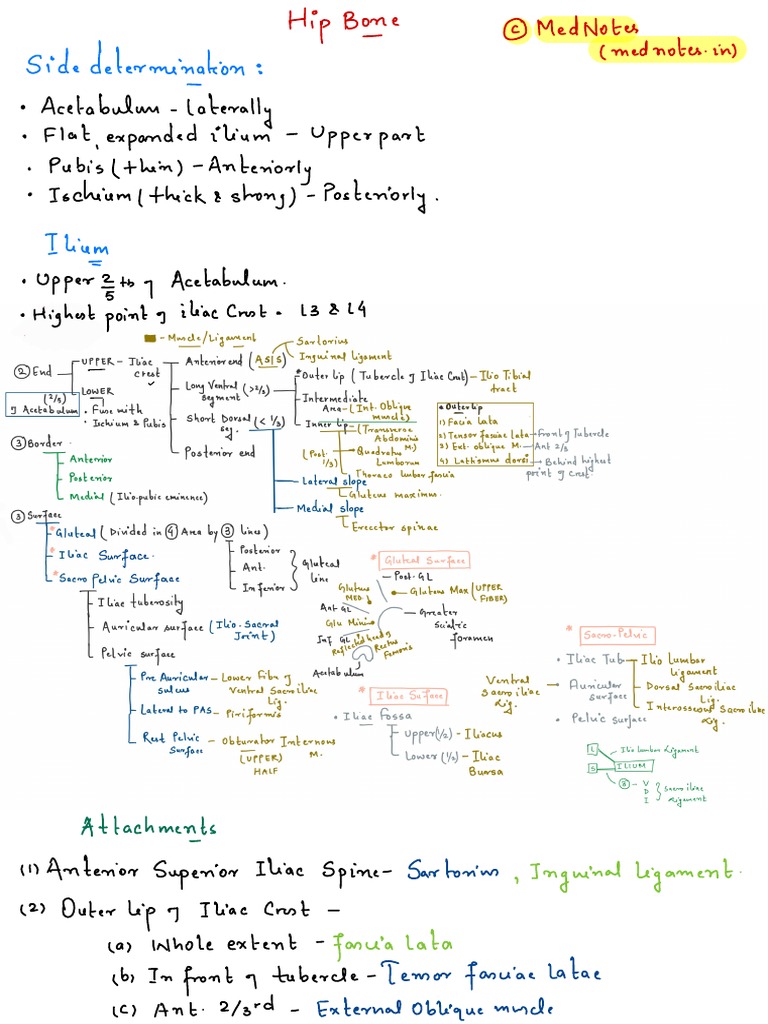 Hip Bone
© MedNotes
(mednotes.in)
Side determination :
• Acetabulum - laterally
• Flat, expanded ilium - Upper part
• Pubis (thin) - Anteriorly
• Ischium (thick & strong) - Posteriorly.
Ilium
• Upper 2/5 th of Acetabulum.
• Highest point of iliac Crest - L3 & L4
- Muscle/Ligament
② End
UPPER - Iliac crest
LOWER
(2/5) of Acetabulum
• Fuse with
• Ischium & Pubis
Anterior end (ASIS)
Sartorius
Inguinal ligament
Long Ventral segment (>2/3)
Short Dorsal seg. (< 1/3)
Posterior end
*Outer lip (Tubercle of Iliac Crest) - Ilio Tibial tract
Intermediate Area - (Int. Oblique muscle)
Inner lip - (Transverse Abdominis M.)
(Post. 1/3)
Quadratus Lumborum
Thoraco lumbar fascia
Lateral slope
Gluteus maximus.
Medial slope
Erecctor spinae
* Outer lip
1) Facia lata
2) Tensor fasciae lata - Front of Tubercle
3) Ext. oblique M - Ant 2/3
4) Lathismus dorsi - Behind highest point of crest.
③ Border
Anterior
Posterior
Medial (Ilio-pubic eminence)
③ Surface
*Gluteal (Divided in ④ Area by ③ lines)
* Iliac Surface.
*Sacro Pelvic Surface
Posterior
Ant.
Inferior
Gluteal line
Iliac tuberosity
Auricular surface (Ilio-Sacral Joint)
Pelvic surface
Pre Auricular sulcus - Lower Fibr of Ventral Sacroiliac Lig.
Lateral to PAS - Piriformis
Rest Pelvic surface - Obturator Internous M. (UPPER) HALF
* Gluteal Surface
Post. GL
Gluteus MED.
Gluteus Max (UPPER FIBER)
Ant GL
Glu Mini
Greater Sciatic foramen
Inf GL
Reflected head of Rectus Femoris
Acetabulum
* Iliac Suface
• Iliac fossa
Upper (1/2) - Iliacus
Lower (1/2) - Iliac Bursa
* Sacro-Pelvic
• Iliac Tub
Ilio lumbar ligament
Dorsal Sacroiliac Lig.
Interosseous Sacroiliac Lig.
Ventral Sacroiliac Lig.
Auricular surface
• Pelvic surface
L
Ilio lumbar Ligament
ILIUM
S
③ - V D I } Sacroiliac Ligament
Attachments
(1) Anterior Superior Iliac Spine - Sartorius , Inguinal Ligament.
(2) Outer Lip of Iliac Crest -
(a) Whole extent - fascia lata
(b) In front of tubercle - Tensor fasciae latae
(c) Ant. 2/3rd - External Oblique muscle